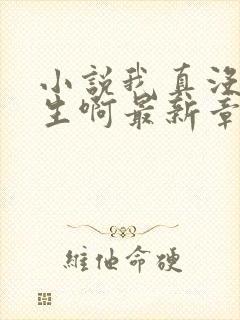 小説我真没
生啊最新章
維他命硬